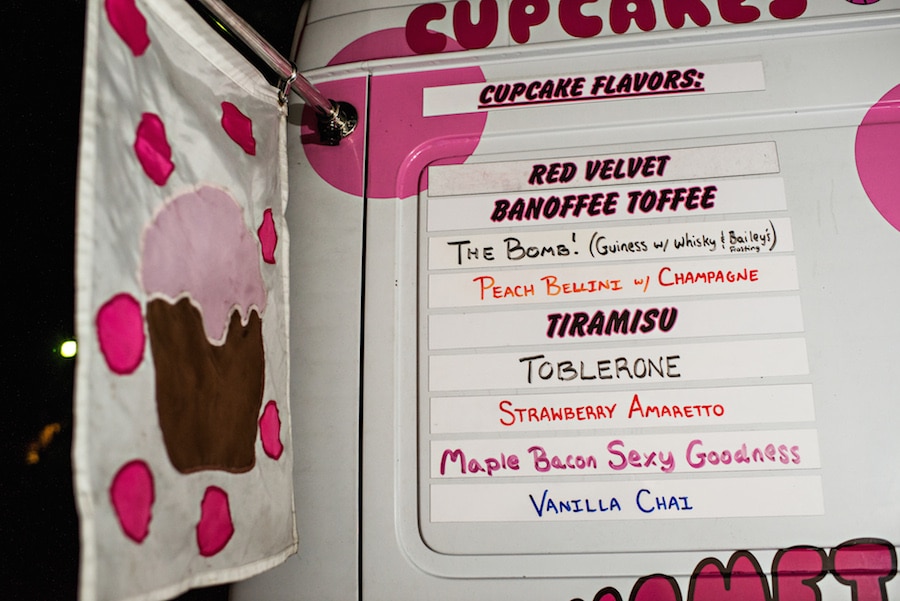 CUPCAKES
CUPCAKE FLAVORS:
RED VELVET
BANOFFEE TOFFEE
THE BOMB! (GUINESS W/ WHISKY & BAILEY'S FROSTING)
PEACH BELLINI W/ CHAMPAGNE
TIRAMISU
TOBLERONE
STRAWBERRY AMARETTO
Maple Bacon Sexy Goodness
VANILLA CHAI